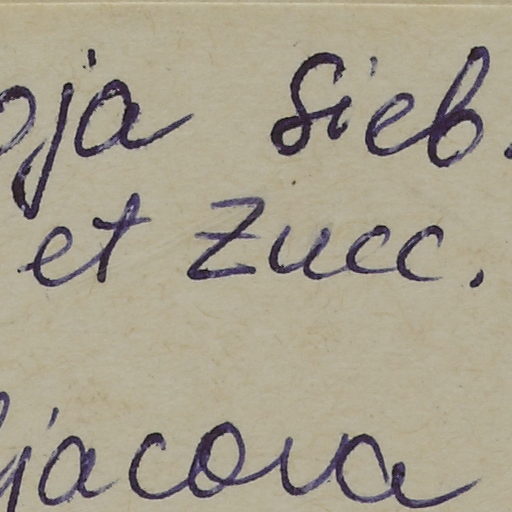 oja Sieb.
et Zucc.
jacova